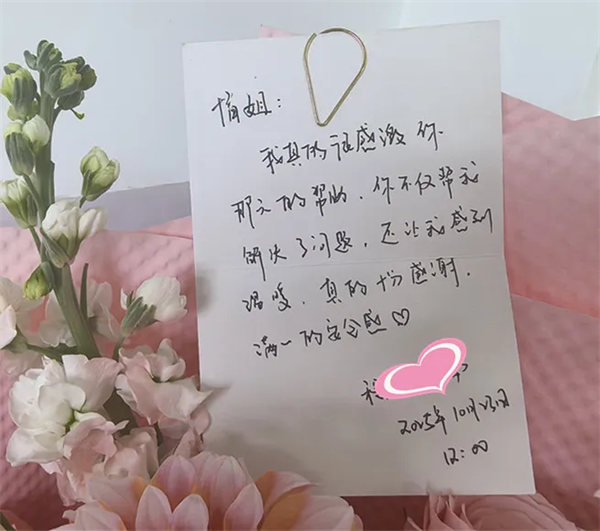 悄姐：
我真的很感激你
那天的帮助，你不仅帮我
解决了问题，还让我感到
温暖，真的十份感谢，
满一的安全感♡
2025年10月23日
12:00